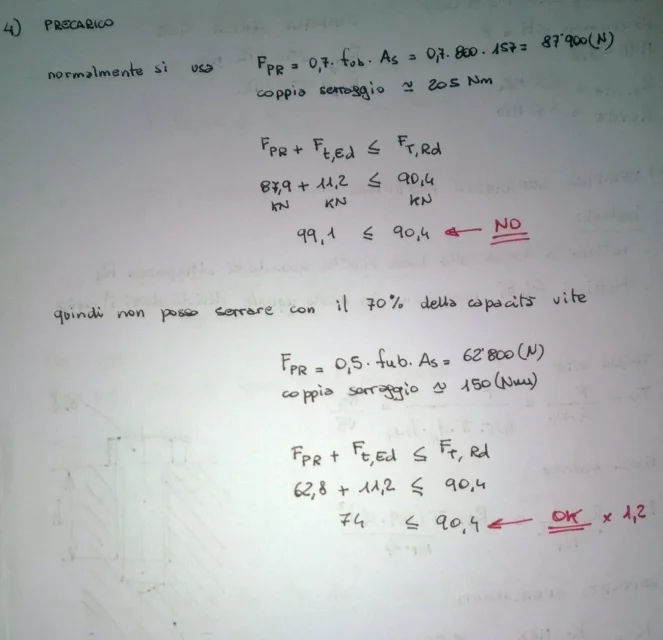 4) PRECARICO
normalmente si usa F_PR = 0,7 · fub · As = 0,7 · 800 · 157 = 87'900 (N)
coppia serraggio ≃ 205 Nm
F_PR + F_t,Ed ≤ F_T,Rd
87,9 + 11,2 ≤ 90,4
KN KN KN
99,1 ≤ 90,4 ← NO
quindi non posso serrare con il 70% della capacità vite
F_PR = 0,5 · fub · As = 62'800 (N)
coppia serraggio ≃ 150 (Nm)
F_PR + F_t,Ed ≤ F_T,Rd
62,8 + 11,2 ≤ 90,4
74 ≤ 90,4 ← OK × 1,2